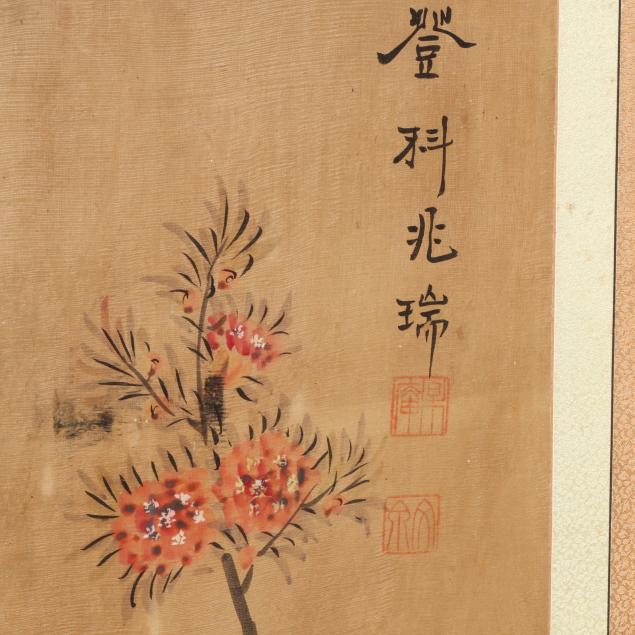 登科兆瑞